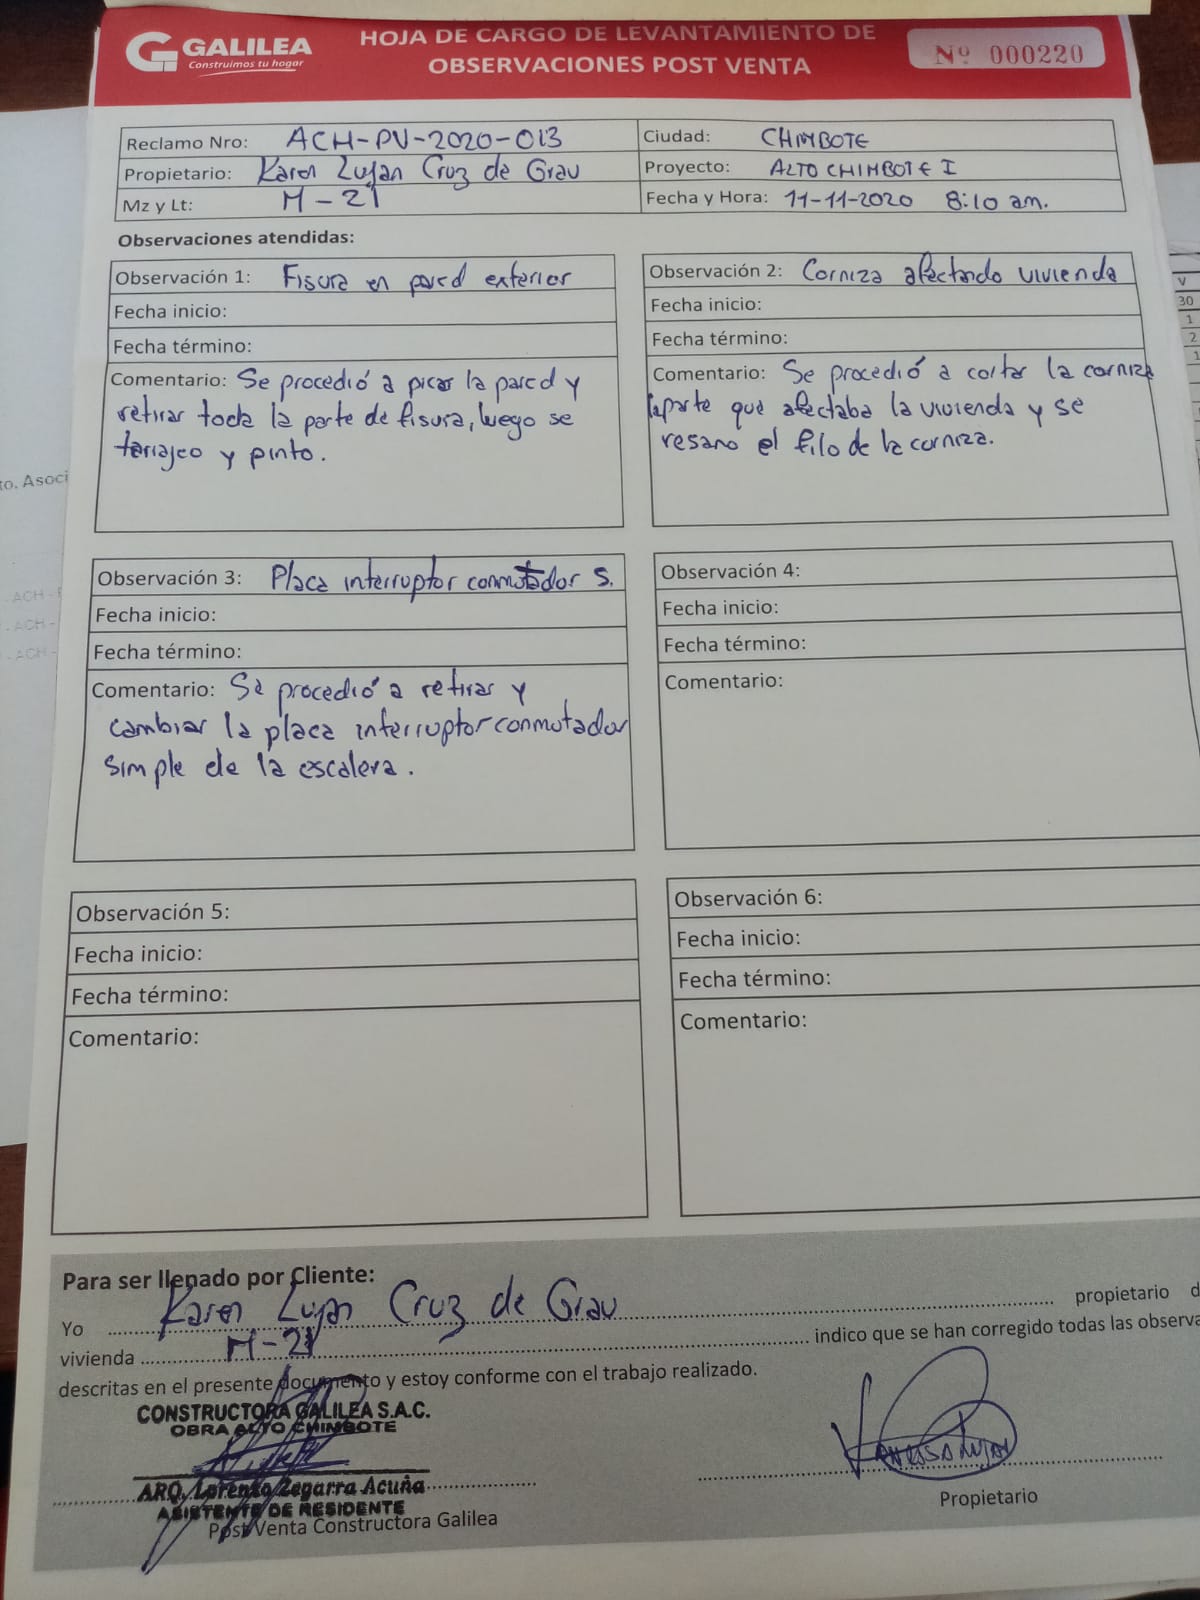 GALILEA
Construimos tu hogar
HOJA DE CARGO DE LEVANTAMIENTO DE
OBSERVACIONES POST VENTA
Nº 000220
Reclamo Nro: ACH-PV-2020-013
Ciudad: CHIMBOTE
Propietario: Karen Lujan Cruz de Grau
Proyecto: ALTO CHIMBOTE I
Mz y Lt: M-21
Fecha y Hora: 11-11-2020 8:10 am.
Observaciones atendidas:
Observación 1: Fisura en pared exterior
Fecha inicio:
Fecha término:
Comentario: Se procedió a picar la pared y
retirar toda la parte de fisura, luego se
tarrajeo y pinto.
Observación 2: Corniza afectando vivienda
Fecha inicio:
Fecha término:
Comentario: Se procedió a cortar la corniza
la parte que afectaba la vivienda y se
resano el filo de la corniza.
Observación 3: Placa interruptor conmutador S.
Fecha inicio:
Fecha término:
Comentario: Se procedió a retirar y
cambiar la placa interruptor conmutador
simple de la escalera.
Observación 4:
Fecha inicio:
Fecha término:
Comentario:
Observación 5:
Fecha inicio:
Fecha término:
Comentario:
Observación 6:
Fecha inicio:
Fecha término:
Comentario:
Para ser llenado por Cliente:
Yo Karen Lujan Cruz de Grau propietario d
vivienda M-21 indico que se han corregido todas las observa
descritas en el presente documento y estoy conforme con el trabajo realizado.
CONSTRUCTORA GALILEA S.A.C.
OBRA ALTO CHIMBOTE
ARQ. Lorenzo Zegarra Acuña
ASISTENTE DE RESIDENTE
Post Venta Constructora Galilea
Vanessa Lujan
Propietario
to. Asoci
- ACH -
- ACH -
- ACH -
V
30
1
2
1